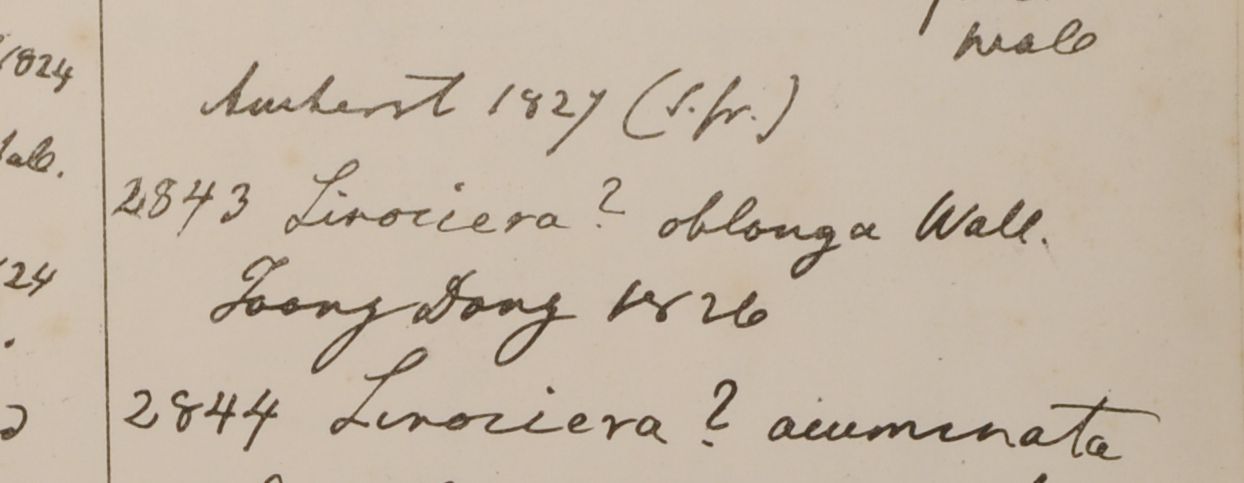 1824
Wall
Amherst 1827 (s.fr.)
2843 Linociera? oblonga Wall.
24
Toong Dong 1826
2844 Linociera? acuminata